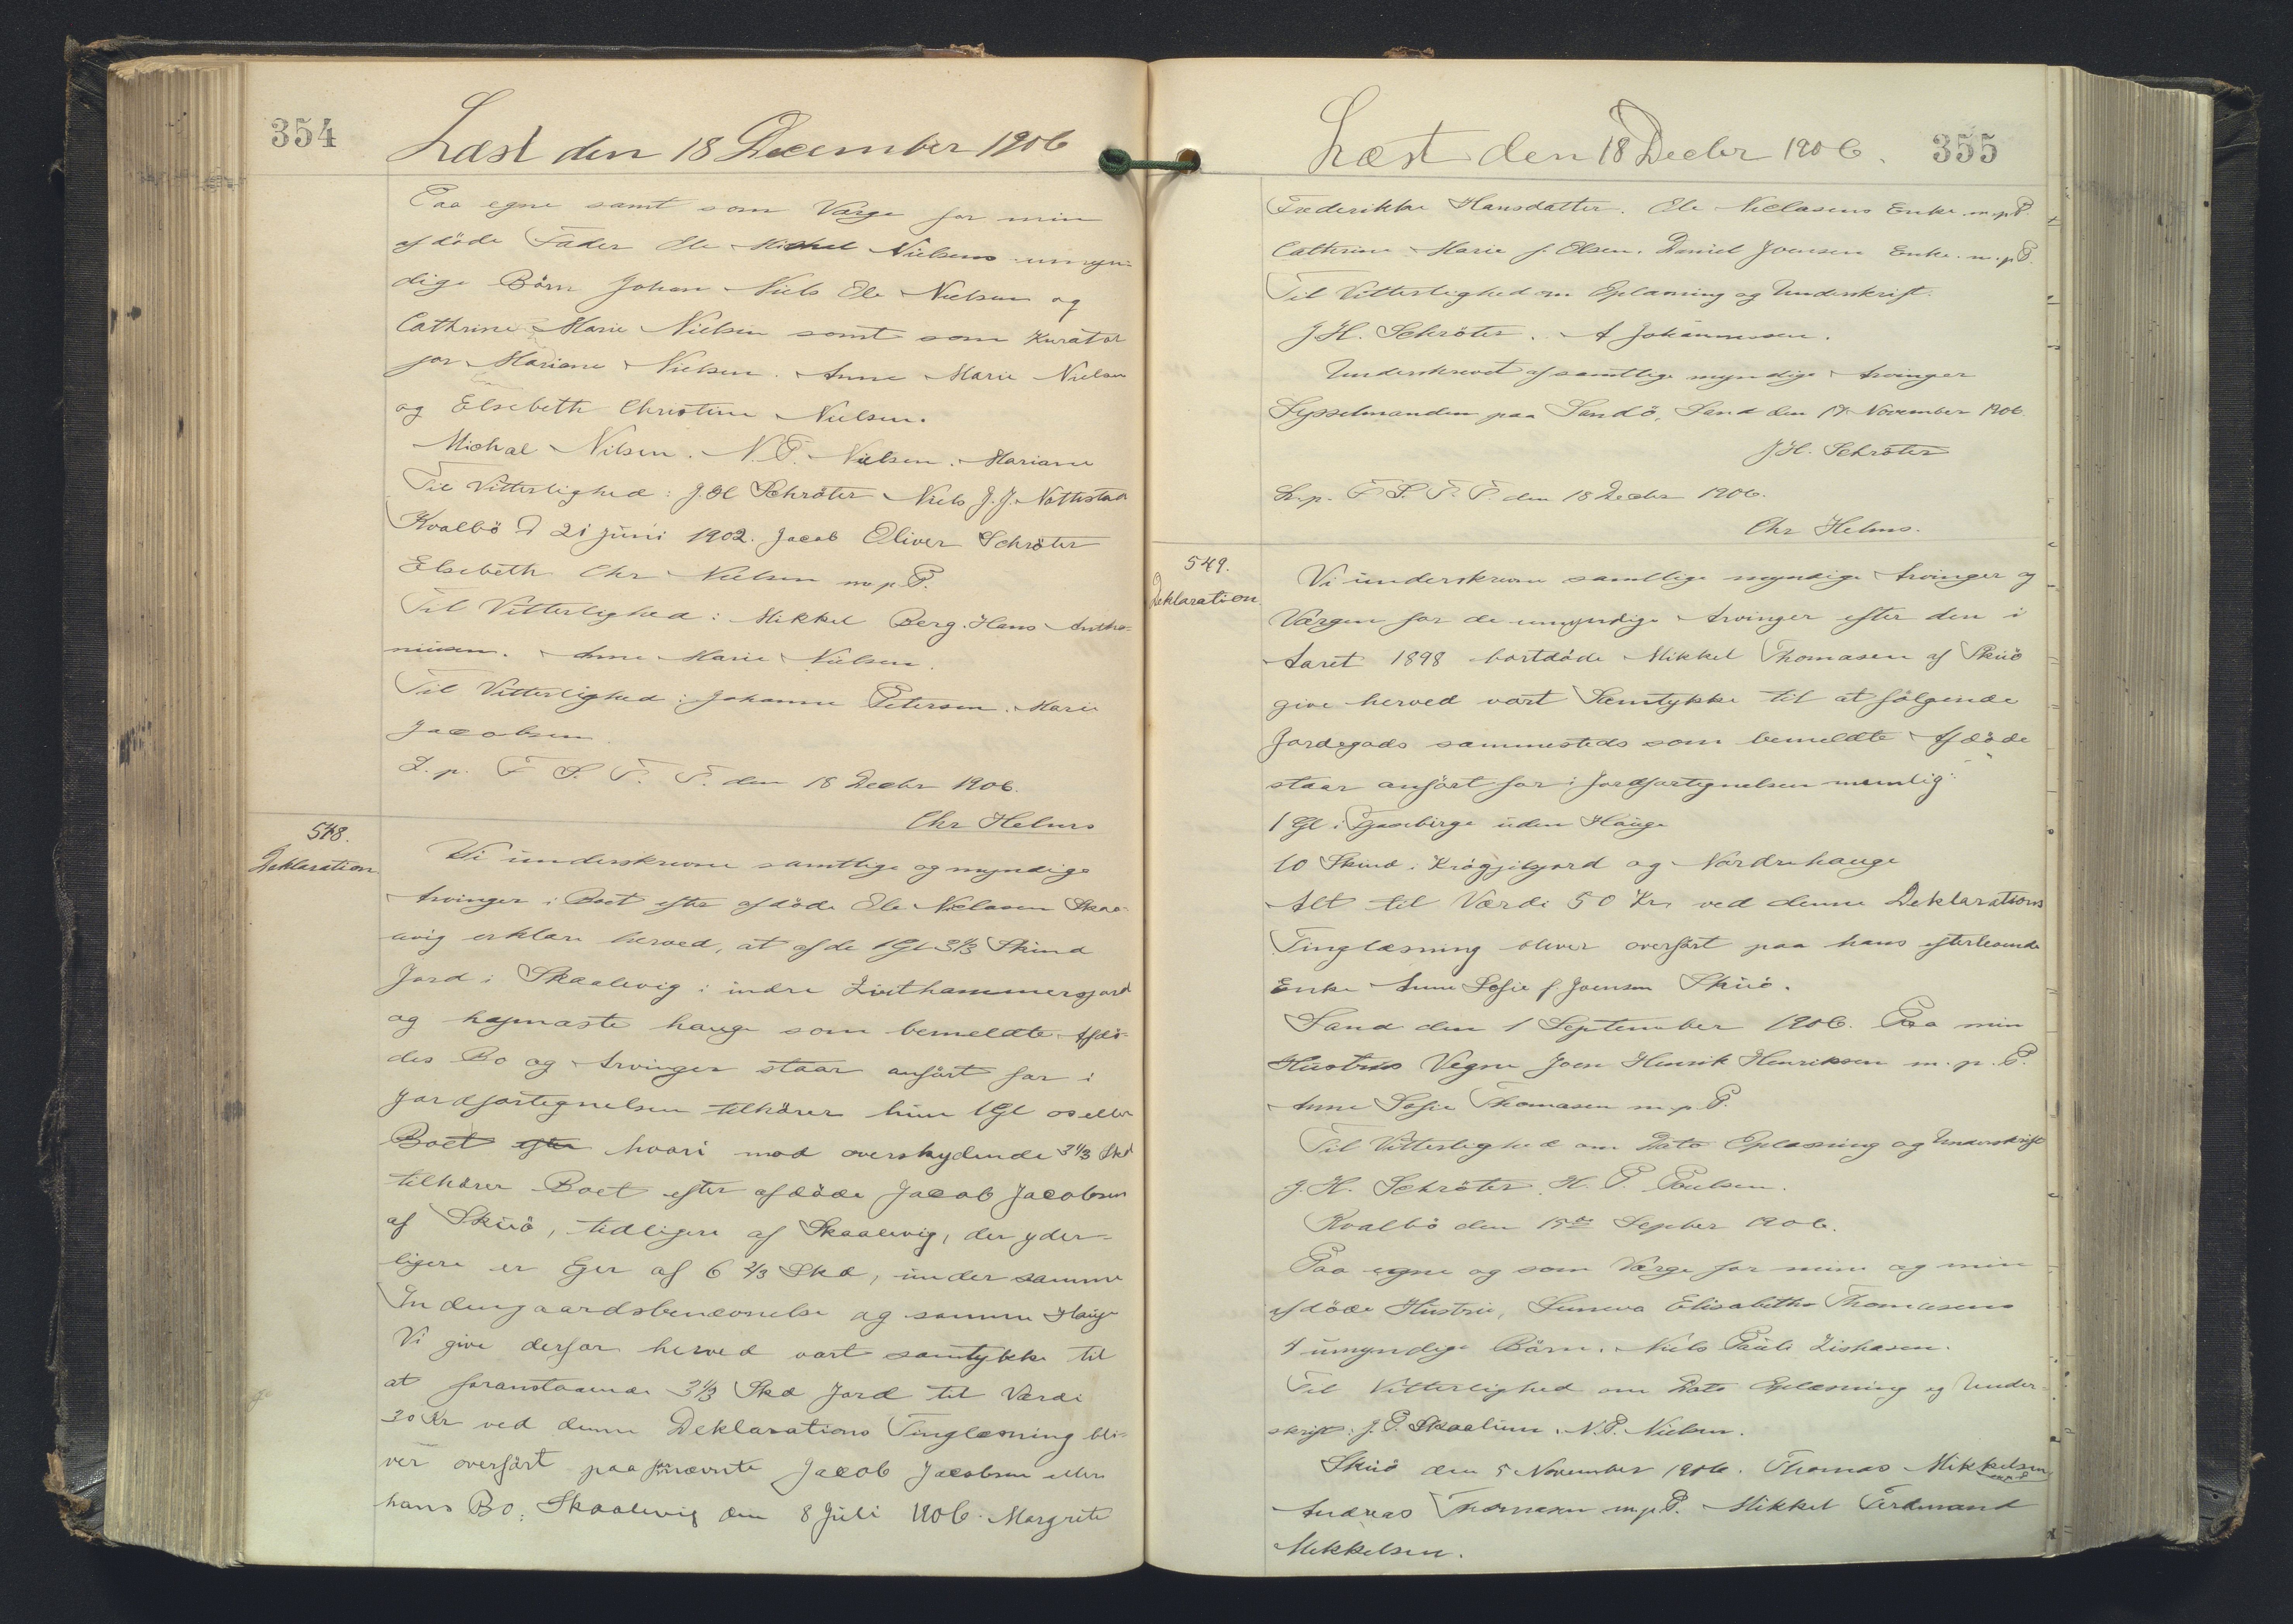 354
Læst den 18 December 1906
Paa egne samt som Værge for min
afdöde Fader Ole Michal Nielsens umyn-
dige Börn Johan Niels Ole Nielsen og
Cathrine Marie Nielsen samt som Kurator
for Mariane Nielsen. Anne Marie Nielsen
og Elsebeth Christine Nielsen.
Michal Nilsen. N. P. Nielsen. Mariane
Til Vitterlighed: J. H Schröter Niels J. J.
Kvalbö d 21 juni 1902. Jacob Oliver Schröter
Elsebeth Chr Nielsen m p P.
Til Vitterlighed: Mikkel Berg. Hans Antho-
niusen. Anne Marie Nielsen.
Til Vitterlighed: Johanne Petersen. Marie
Jacobsen.
L. p. F S. T. T. den 18 Decbr 1906.
Chr Helms
548.
Deklaration
Vi underskrevne samtlige og myndige
Arvinger i Boet efter afdöde Ole Niclasen Skaa-
uvig erklære herved, at af de 1 Gl 3 1/3 Skind
Jord i Skaalevig i indre Livthammersjord
og hejmaste hauge som bemeldte Afdö-
des Bo og Arvinger staar anfört for i
Jordfortegnelsen tilhörer kun 1 Gl os eller
Boet efter hvori mod overskydende 3 1/3 Skd
tilhörer Boet efter afdöde Jacob Jacobsen
af Skuö, tidligere af Skaalevig, der yder-
ligere er Ejer af 6 2/3 Skd, under samme
Indengaardsbenævnelse og samme Hauge
Vi give derfor herved vort samtykke til
at foranstaaende 3 1/3 Skd Jord til Værdi
30 Kr ved denne Deklarations Tinglæsning bli-
ver overfört paa fornævnte Jacob Jacobsen eller
hans Bo. Skaalevig den 8 Juli 1906. Margrete
Læst den 18 Decbr 1906. 355
Frederikke Hansdatter. Ole Niclasens Enke m. p P
Cathrine Marie f. Olsen. Daniel Joensen Enke. m. p P.
Til Vitterlighed om Oplæsning og Underskrift.
J H. Schröter. A Johannesen.
Underskrevet af samtlige myndige Arvinger
Sysselmanden paa Sandö, Sand den 17 November 1906
J H. Schröter
L. p. F S. T. T. den 18 Decbr 1906.
Chr Helms.
549.
Deklaration
Vi underskrevne samtlige myndige Arvinger og
Værgen for de umyndige Arvinger efter den i
Aaret 1898 bortdöde Mikkel Thomasen af Skuö
give herved vort Samtykke til at fölgende
Jordegods sammesteds som bemeldte Afdöde
staar anfört for i Jordfortegnelsen nemlig:
1 Gl i uden Hauge
10 Skind i og Nordrehauge
Alt til Værdi 50 Kr ved denne Deklarations
Tinglæsning bliver overfört paa hans efterlevende
Enke Anne Sofie f. Joensen Skuö.
Sand den 1 September 1906. Paa min
Hustrus Vegne Joen Henrik Henriksen m. p. P.
Anne Sofie Thomasen m p P.
Til Vitterlighed om Dato Oplæsning og Underskrift
J. H. Schröter. H. P. Poulsen.
Kvalbö den 15de Septber 1906.
Paa egne og som Værge for mine og min
afdöde Hustru, Sunneva Elisabeths Thomasens
4 umyndige Börn. Niels Pauli
Til Vitterlighed om Dato Oplæsning og Under-
skrift: J. P. Skaalum. N. P. Nielsen.
Skuö den 5 November 1906. Thomas Mikkelsen
m p P
Andreas Thomasen m p. P. Mikkel Ferdinand
Mikkelsen.